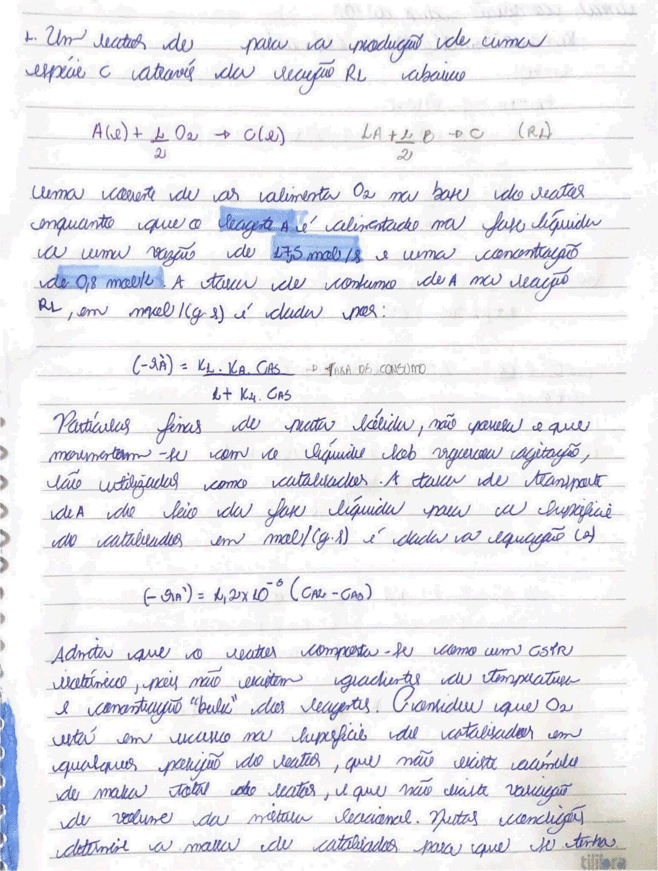 1. Um reator de para a produção de uma
espécie C através da reação R1 abaixo
A(l) + 1/2 O2 → C(l) 1A + 1/2 B → C (R1)
uma corrente de ar alimenta O2 na base do reator
enquanto que o reagente A é alimentado na fase líquida
a uma vazão de 17,5 mol/s e uma concentração
de 0,8 mol/L. A taxa de consumo de A na reação
R1, em mol/(g.s) é dada por:
(-rA) = K1. KA. CAS / 1 + K4. CAS → TAXA DE CONSUMO
Partículas finas de prata sólida, não porosa e que
movimentam-se com o líquido sob vigorosa agitação,
são utilizadas como catalisador. A taxa de transporte
de A do seio da fase líquida para a superfície
do catalisador em mol/(g.s) é dada a equação (2)
(-rA') = 1,2x10^-6 (CAL - CAS)
Admita que o reator comporta-se como um CSTR
isotérmico, pois não existem gradientes de temperatura
e concentração "bulk" dos reagentes. Considere que O2
está em excesso na superfície do catalisador em
qualquer posição do reator, que não existe acúmulo
de massa total do reator, e que não existe variação
de volume da mistura reacional. Nestas condições
determine a massa de catalisador para que se tenha
tilibra